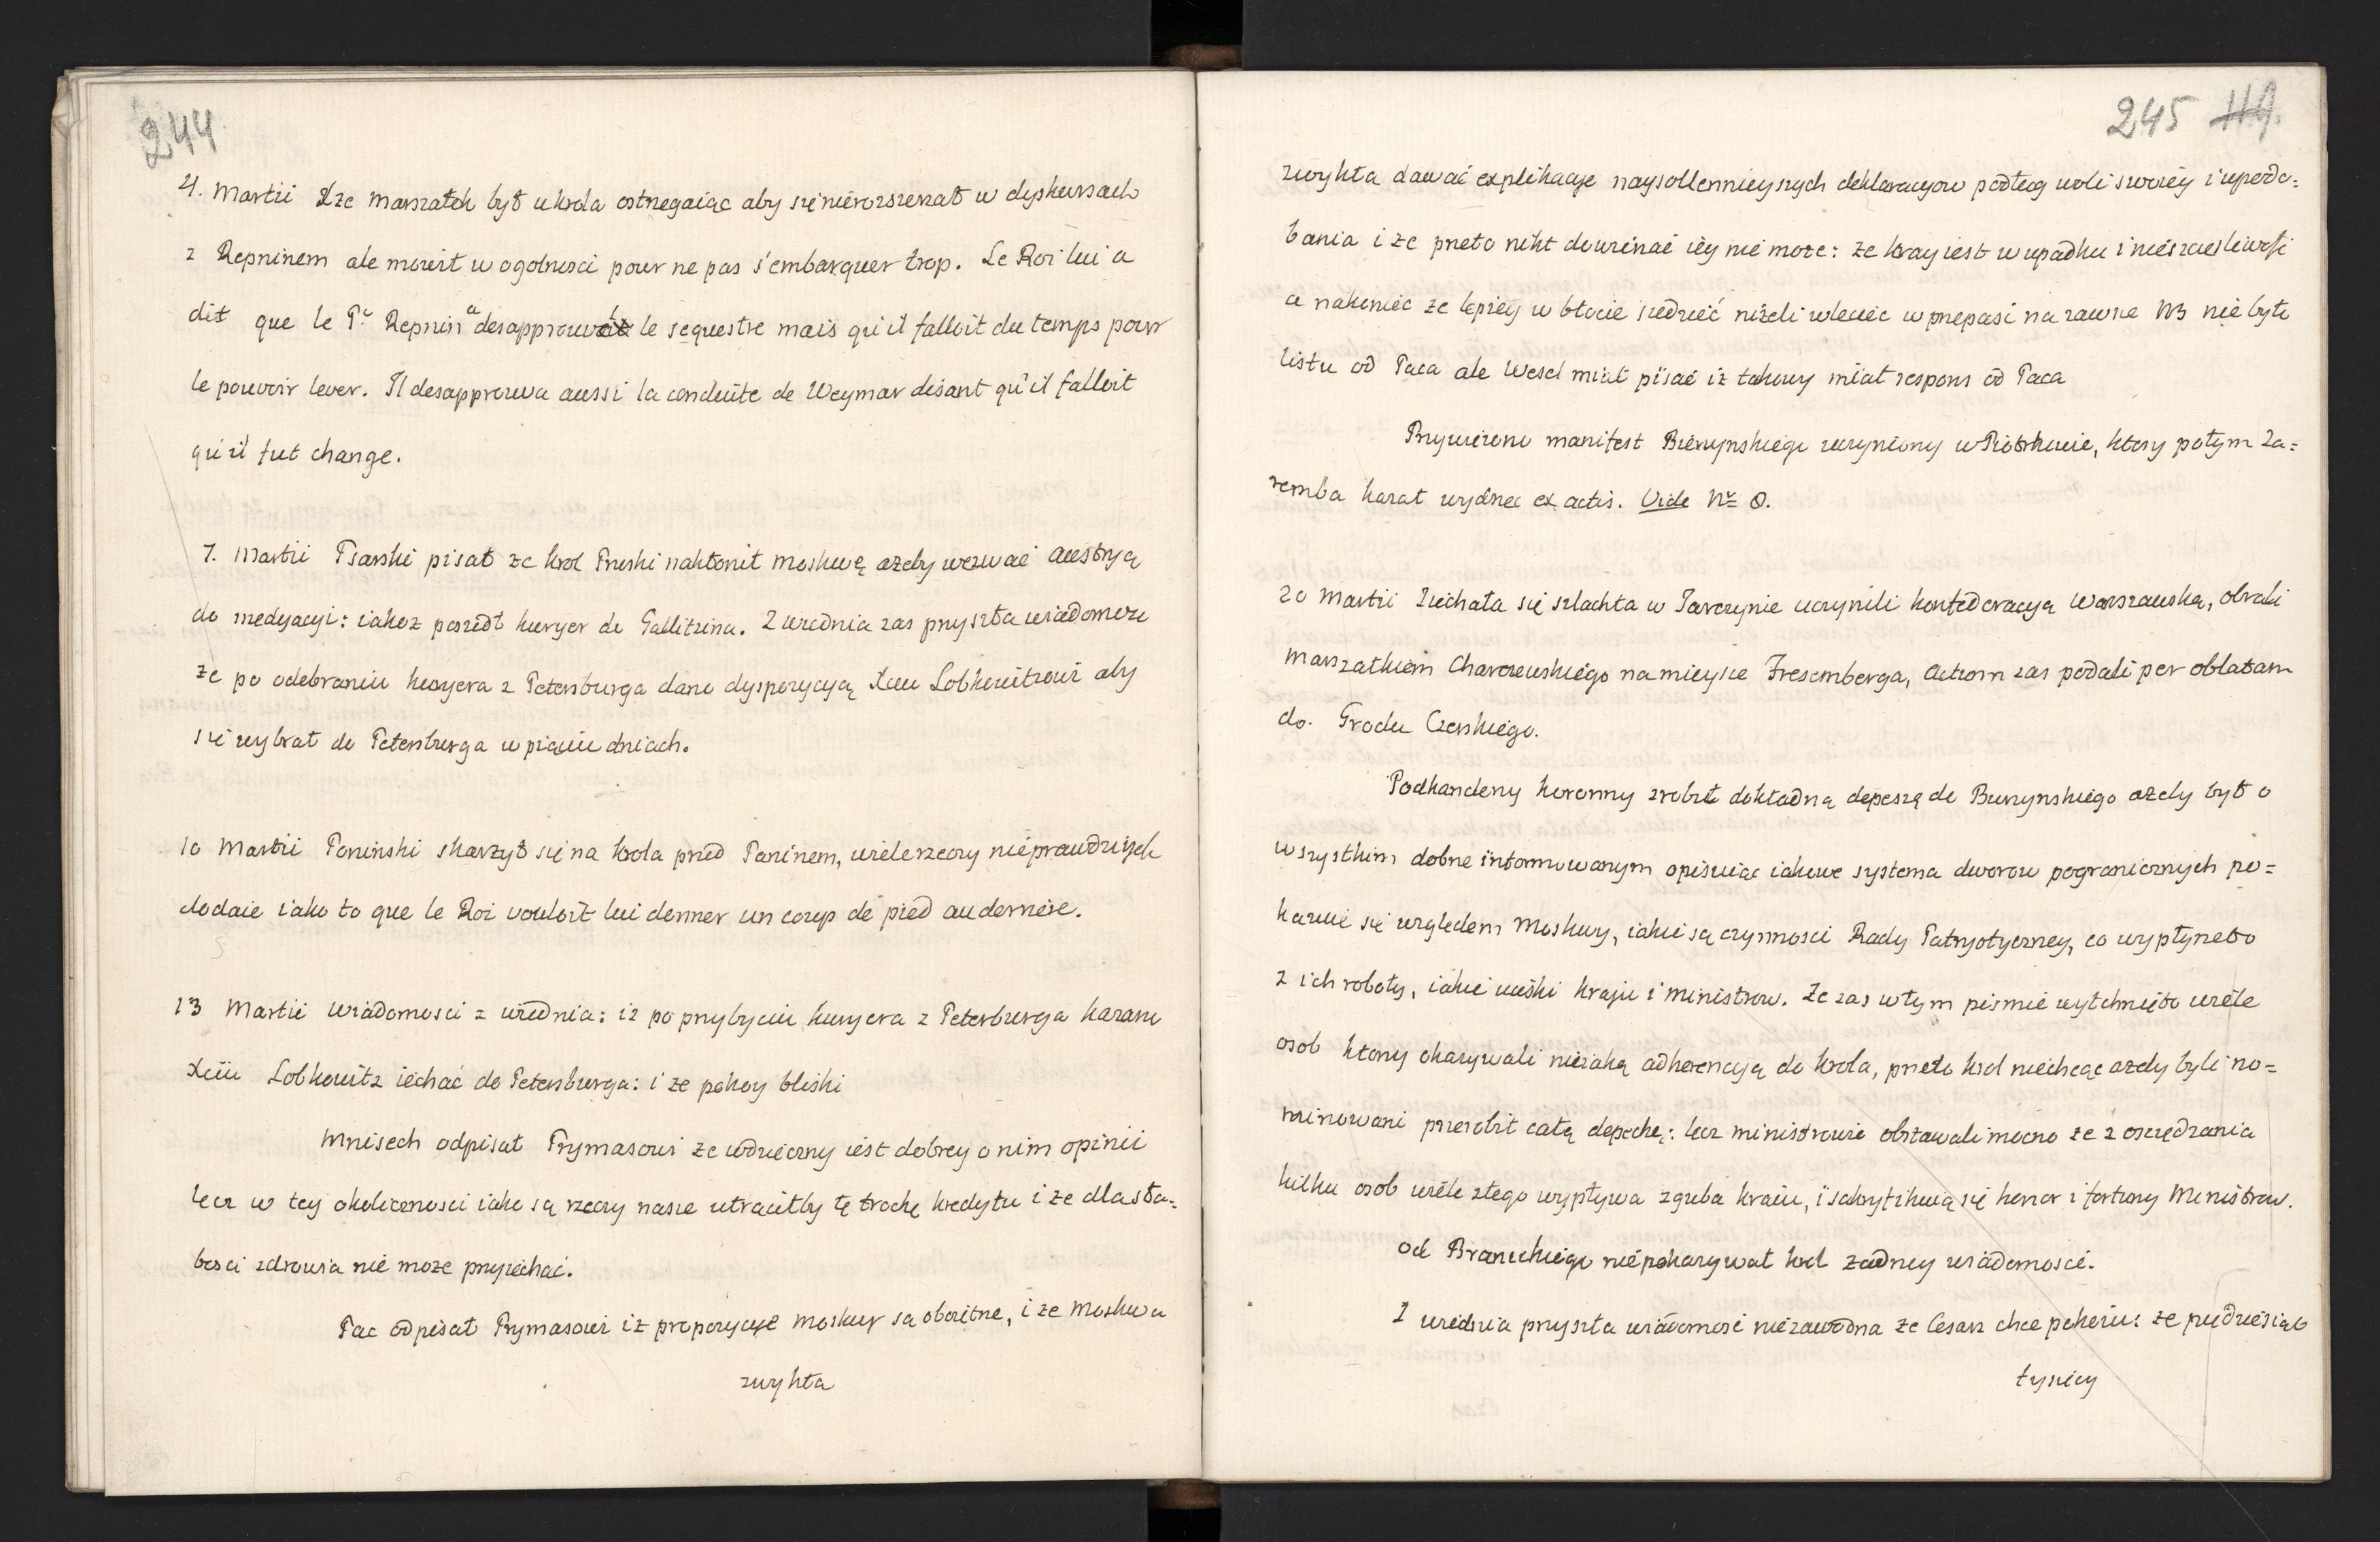 244
4. Martii Xże Marszałek był u krola ostrzegaiąc aby się nierozszerzał w dyskursach
z Repninem ale mowił w ogolnosci pour ne pas s'embarquer trop. Le Roi lui a
dit que le P.ce Repnin a desapprouvé le sequestre mais qu'il falloit du temps pour
le pouvoir lever. Il desapprouva aussi la conduite de Weymar disant qu'il falloit
qu'il fut change.
7. Martii Psarski pisał ze krol Pruski nakłonił Moskwę azeby wezwać Austryą
do medyacyi: iakoz poszedł kuryer do Gallitzina. Z Wiednia zas przyszła wiadomosc
ze po odebraniu kuryera z Petersburga dano dyspozycyą Xciu Lobkowitzowi aby
się wybrał do Petersburga w pięciu dniach.
10 Martii Poninski skarzył się na krola przed Paninem, wiele rzeczy nieprawdziwych
dodaie iako to que le Roi vouloit lui donner un coup de pied au derriere.
13 Martii Wiadomosci z Wiednia: iz po przybyciu kuryera z Peterburga kazano
Xciu Lobkowitz iechać do Petersburga: i ze pokoy bliski
Mniszech odpisał Prymasowi ze wdzieczny iest dobrey o nim opinii
lecz w tey okolicznosci iako są rzeczy nasze utraciłby tę trochę kredytu i ze dla sła-
bosci zdrowia nie moze przyiechać.
Pac odpisał Prymasowi iz propozycye Moskwy są obszitne, i ze Moskwa
zwykła
245 119.
zwykła dawać explikacye naysollennieyszych deklaracyow podług woli swoiey i upodo=
bania i ze przeto nikt dowierzać iey nie moze: ze kray iest w upadku i nieszczesliwosci
a nakoniec ze lepiey w błocie siedzieć nizeli wleciec w przepasć na zawsze NB nie było
listu od Paca ale Wesel miał pisać iz takowy miał respons od Paca
Przywieziono manifest Bierzynskiego uczyniony w Piotrkowie, ktory potym Za=
remba kazał wydrzec ex actis. Vide Nr 8.
20 Martii Ziechała się szlachta w Tarczynie uczynili konfederacyą Warszawską, obrali
Marszałkiem Charczewskiego na mieysce Fresemberga, Actum zas podali per oblatam
do Grodu Czerskiego.
Podkanclerzy koronny zrobił dokładną depeszę do Burzynskiego azeby był o
wszystkim dobrze informowanym opisuiąc iakowe systema dworow pogranicznych po=
kazuie się względem Moskwy, iakie są czynnosci Rady Patryotyczney, co wypłyneło
z ich roboty, iakie uciski kraju i Ministrow. Ze zas w tym pismie wytchnięto wiele
osob ktorzy okazywali nieiaką adherencyą do krola, przeto krol niechcąc azeby byli no=
minowani przerobił całą depeche: lecz ministrowie obstawali mocno ze z oszczędzania
kilku osob wiele złego wypływa zguba kraiu, i sakryfikuią się honor i fortuny Ministrow.
Od Branickiego niepokazywał krol zadney wiadomosci.
Z Wiednia przyszła wiadomosc niezawodna ze Cesarz chce pokoiu: ze pięćdziesiąt
tysięcy